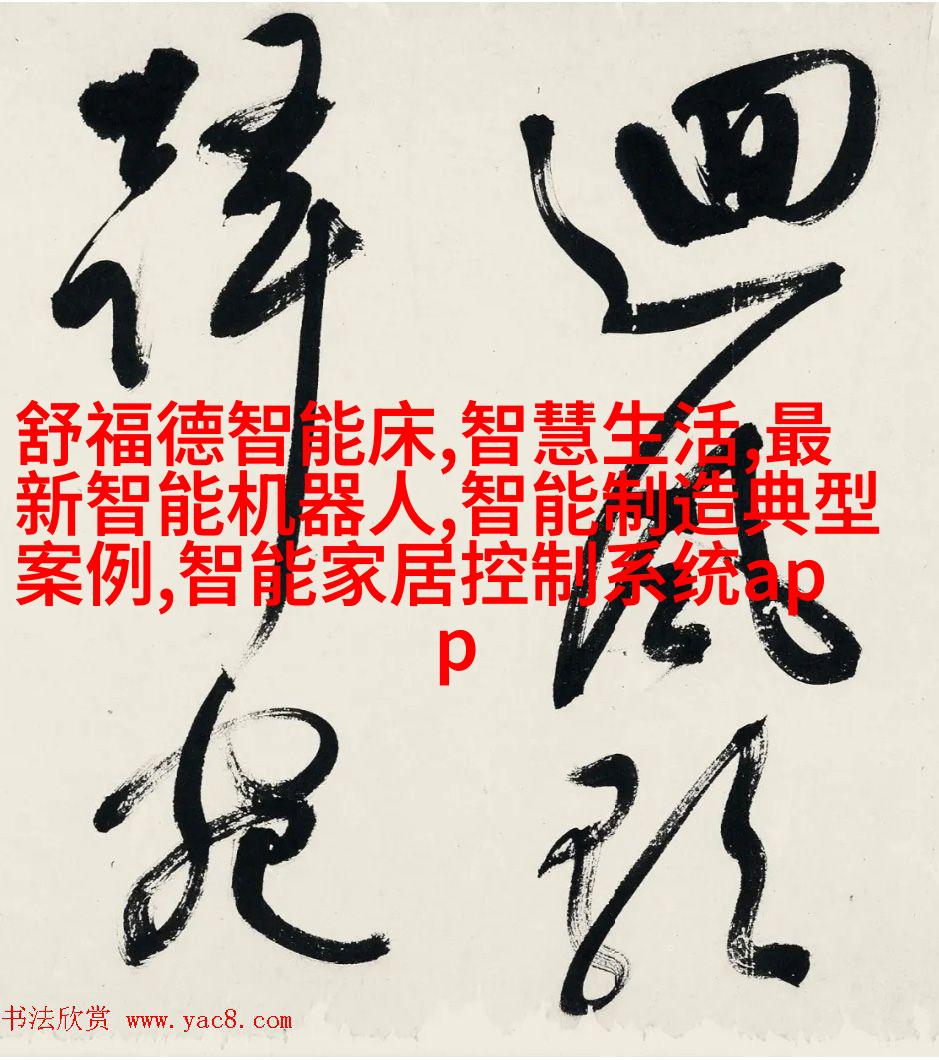 迴風
舒福德智能床,智慧生活,最
新智能机器人,智能制造典型
案例,智能家居控制系统ap
p
书法欣赏 www.yac8.com